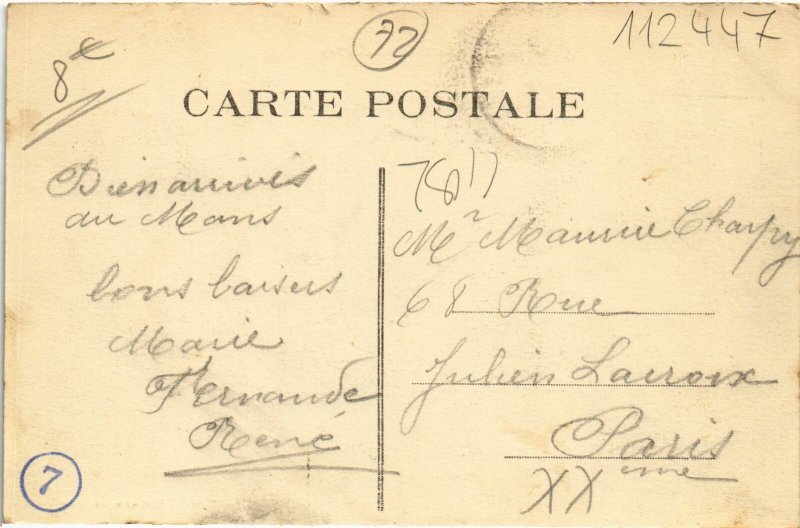 8e
72
112447
CARTE POSTALE
Bien arrivés
au Mans
bons baisers
Marie
Fernande
René
7
Mr Maurice Charpy
68 Rue
Julien Lacroix
Paris
XXeme